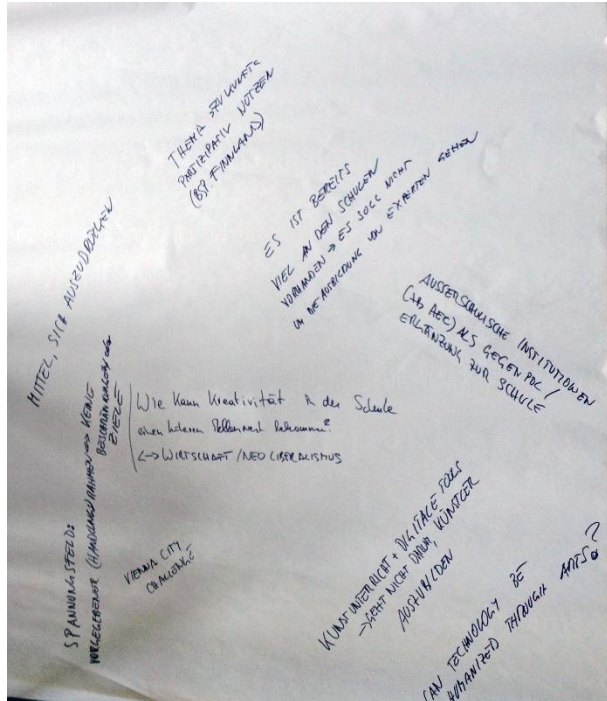 THEMA
PARTIZIPATIV NUTZEN
(BSP. FINNLAND)
ES IST BEREITS
VIEL AN DEN SCHULEN
VORHANDEN → ES SOLL NICHT
UM DIE AUSBILDUNG VON EXPERTEN GEHEN
MITTEL, SICH AUSZUDRÜCKEN
AUSSERSCHULISCHE INSTITUTIONEN
(ZB AEC) ALS GEGENPOL /
ERGÄNZUNG ZUR SCHULE
SPANNUNGSFELD:
VORGEGEBENER (HANDLUNGS)RAHMEN ↔ KEINE
ZIELE
Wie kann Kreativität in der Schule
einen höheren Stellenwert bekommen?
↔ WIRTSCHAFT / NEOLIBERALISMUS
VIENNA CITY
CHALLENGE
KUNSTUNTERRICHT + DIGITALE TOOLS
→ GEHT NICHT DARUM, KÜNSTLER
AUSZUBILDEN
CAN TECHNOLOGY BE
HUMANIZED THROUGH ARTS?